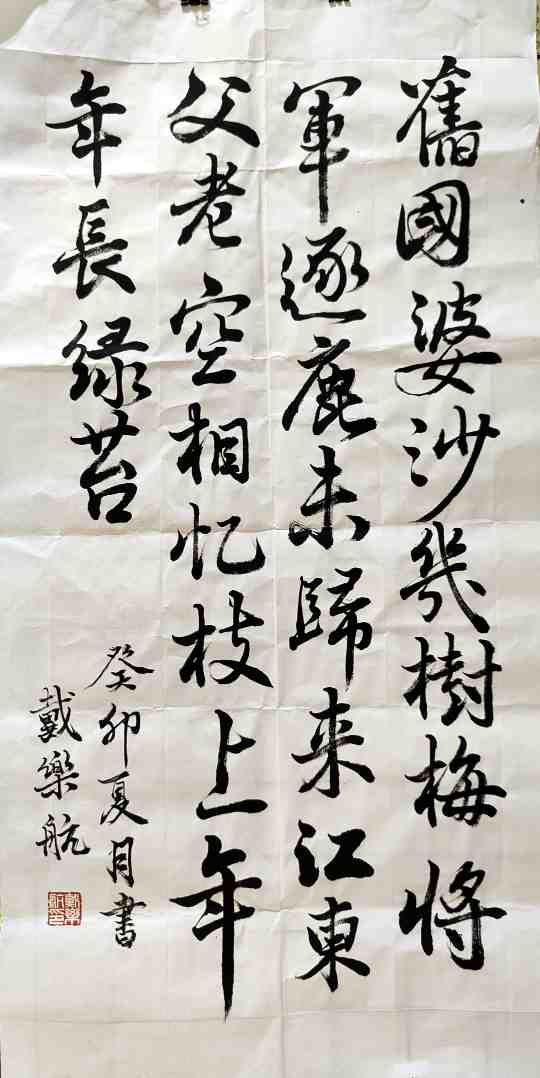 舊國婆沙幾樹梅將
軍逐鹿未歸来江東
父老空相忆枝上年
年長緑苔
癸卯夏月書
戴樂航